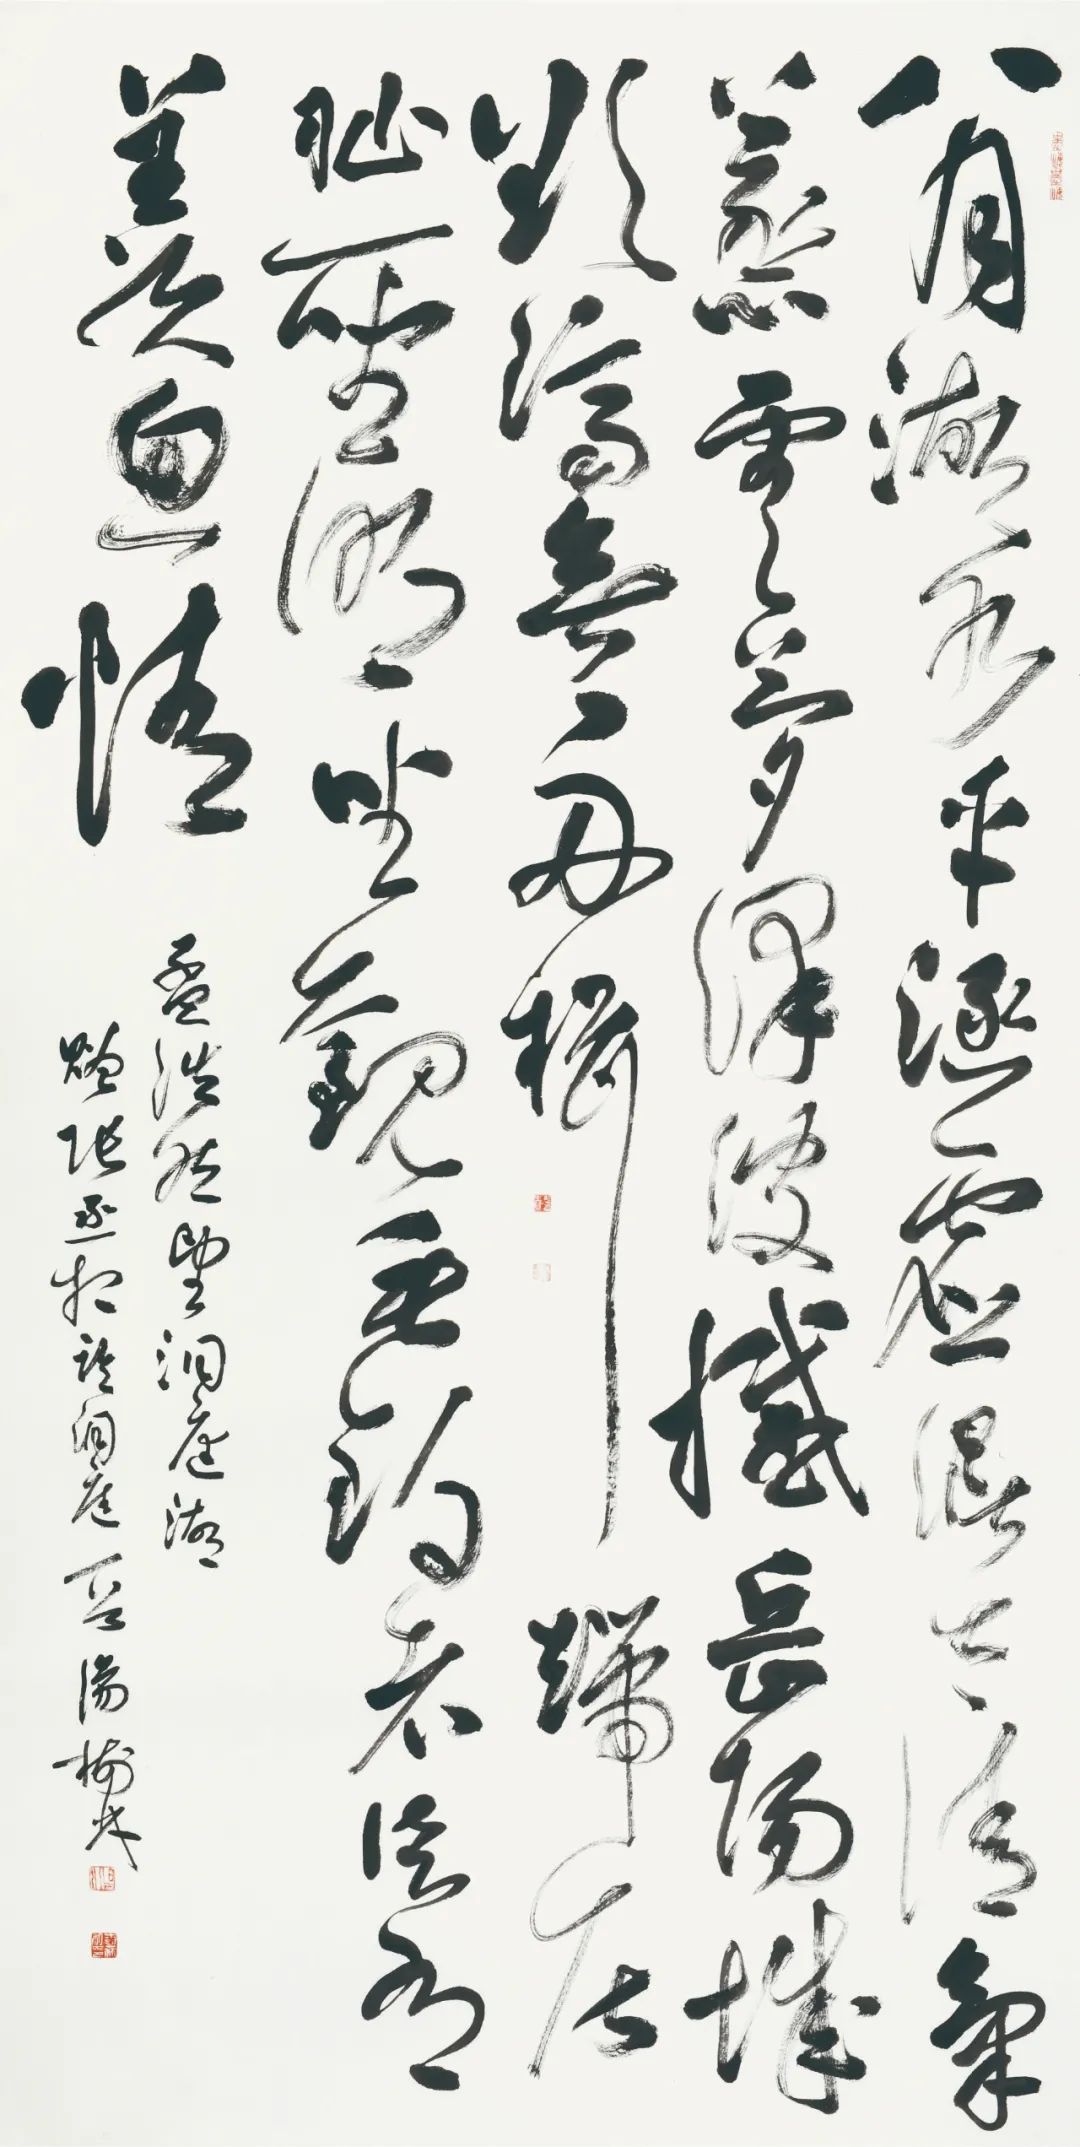 八月湖水平涵虛混太清氣
蒸雲夢澤波撼岳陽城
欲濟無舟楫端居
耻聖明坐觀垂釣者徒有
羨魚情
孟浩然望洞庭湖
贈張丞相洞庭